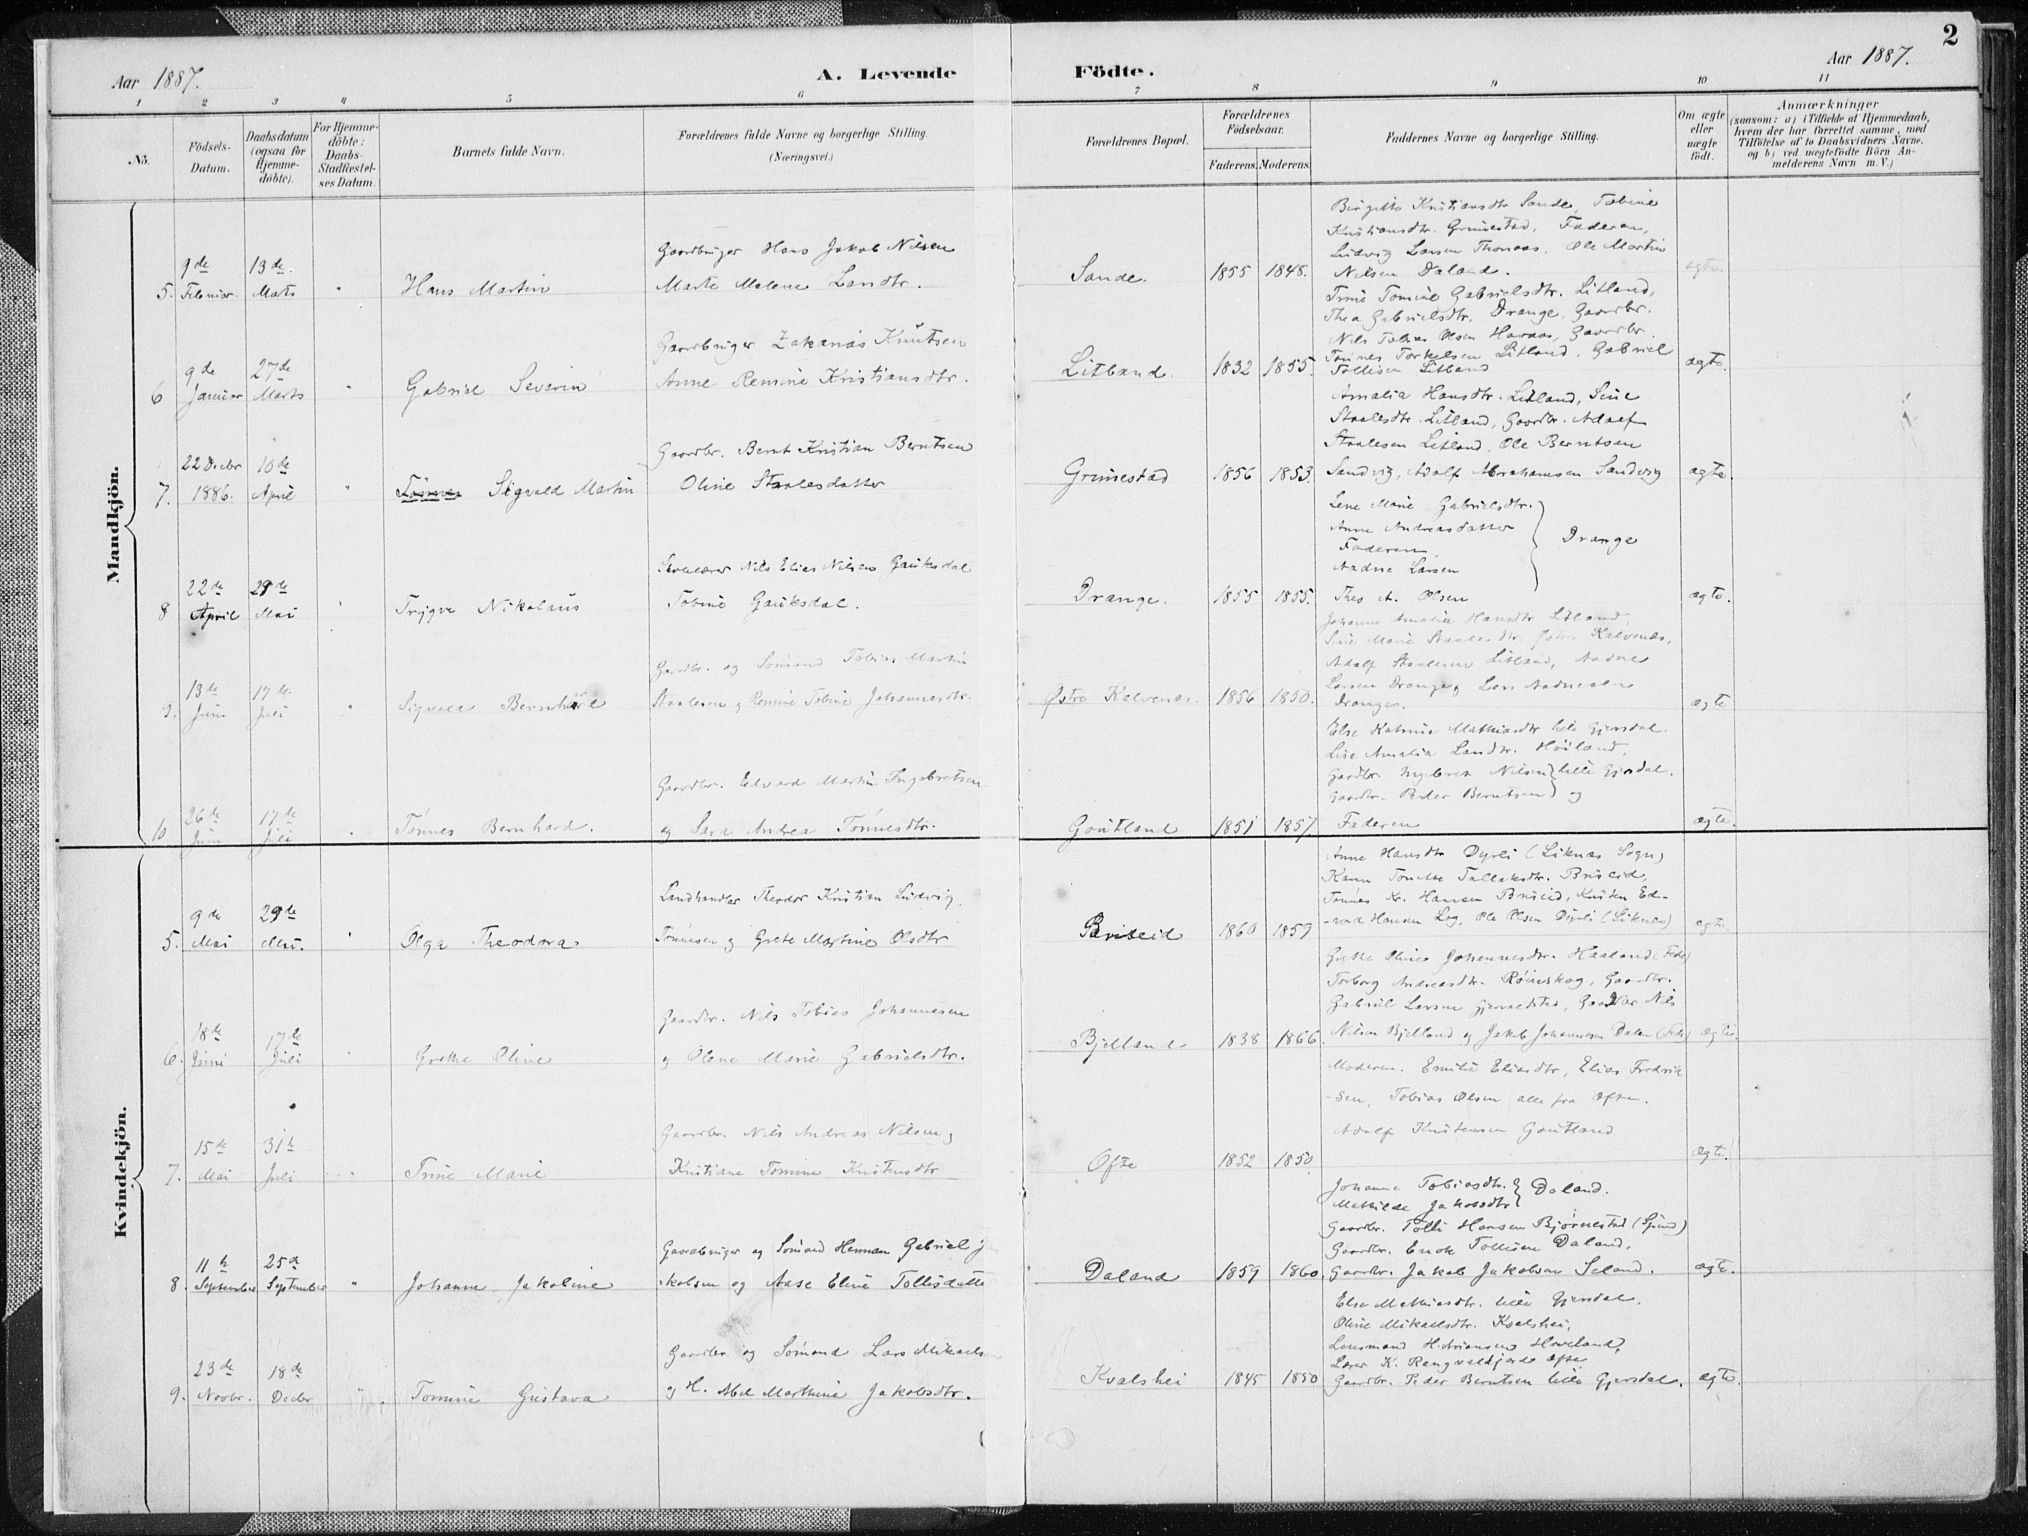 2
Aar 1887.
A. Levende Födte.
Aar 1887.
1 2 3 4 5 6 7 8 9 10 11
No.
Födsels-Datum.
Daabsdatum (ogsaa for Hjemme-döbte).
For Hjemme-döbte: Daabs-Stadfæstel-ses Datum.
Barnets fulde Navn.
Forældrenes fulde Navne og borgerlige Stilling.
(Næringsvei.)
Forældrenes Bopæl.
Forældrenes Födselsaar.
Faderens. Moderens.
Faddernes Navne og borgerlige Stilling.
Om ægte eller uægte födt.
Anmærkninger
(saasom: a) i Tilfælde af Hjemmedaab,
hvem der har forrettet samme, med
Tilföielse af to Daabsvidners Navne.
og b) ved uegtefödte Börn An-
melderens Navn m. V.)
Mandkjön.
Birgitte Kristiansdtr Sande, Tobine
Kristiansdtr. Grimestad, Faderen,
Gaardbruger Hans Jakob Nilsen
Ludvig Larsen Thonaas, Ole Martin
9de 13de.
5. Februar. Marts " Hans Martin Marte Malene Larsdtr. Sande. 1855 1848. Nilsen Daland. ægte.
Trine Tomine Gabrielsdtr. Litland,
Thea Gabrielsdtr. Drange, Gaardbr.
Gaardbruger Zakarias Knutsen
Nils Tobias Olsen Haraas, Gaardbr.
Tønnes Torkelsen Litland, Gabriel
9de 27de
6 Januar Marts " Gabriel Severin Anne Remine Kristiansdtr. Litland. 1832 1855. Tollisen Litland ægte.
Amalia Hansdtr. Litland, Sine
Staalesdtr. Litland, Gaardbr. Adolf
Gaardbr. Bernt Kristian Berntsen
Staalesen Litland, Ole Berntsen
22 Decbr 10de
7. 1886. April " Tønnes Sigvald Martin Oline Staalesdatter Grimestad 1856 1853. Sandvig, Adolf Abrahamsen Sandvig ægte.
Lene Marie Gabrielsdtr.
Anne Andreasdatter Drange
Faderen,
Aadne Larsen
Nils Elias Nilsen Gauksdal
22de 29de
8 April Mai " Trygve Nikolaus Tobine Gauksdal. Drange. 1855 1855. Theo A. Olsen ægte.
Johanne Amalia Hansdtr Litland,
Sine Marie Staalesdtr. Østre Kalvenes,
Gaardbr. og Sømand Tobias Martin
Adolf Staalesen Litland, Aadne
Larsen Drange, Lars Aadnesen
13de 17de
9. Juni Juli " Sigvald Bernhard Staalesen og Remine Tobine Johannesdtr. Østre Kalvenes. 1856 1850. Drange. ægte
Else Katrine Mathiasdtr lille Gjersdal.
Lise Amalia Larsdtr. Høiland,
Gaardbr. Edvard Martin Ingebretsen
Gaardbr. Ingebret Nilsen lille Gjersdal.
Gaardbr. Peder Berntsen og
26de 17de
10 Juni Juli " Tønnes Bernhard. og Sara Andrea Tønnesdtr. Goutland 1851 1857 Faderen ægte.
Kvindekjön.
Anne Hansdtr Dyrli (Liknes Sogn)
Karen Tonette Tallaksdtr. Briseid,
Landhandler Theodor Kristian Ludvig
Tønnes Kr. Hansen Briseid, Kristen Ed-
9de 29de
-vard Hansen Log, Ole Olsen Dyrli (Liknes) ægte.
5. Mai Mai. " Olga Theodora Tønnesen og Grete Martine Olsdtr Briseid 1860 1859
Grethe Oline Johannesdtr. Haaland (Fede)
Torborg Andreasdtr. Røinskog, Gaardbr.
Gaardbr. Nils Tobias Johannesen
Gabriel Larsen Gjervoldstad, Gaardbr Nils
18de 17de
6. Juni Juli " Grethe Oline og Olene Marie Gabrielsdtr. Bjelland 1838 1866. Nilsen Bjelland og Jakob Johannesen Dalen (Fede) ægte.
Moderen. Emilie Eliasdtr, Elias Fredrik
-sen, Tobias Olsen alle fra Ofte.
Gaardbr. Nils Andreas Nilsen og
Adolf Kristensen Goutland
15de 31te
7. Mai Juli " Trine Marie Kristiane Tomine Kristensdtr Ofte 1852 1850 ægte.
Johanne Tobiasdtr. Daland.
Mathilde Jakobsdtr
Gaardbr. Tolli Hansen Bjørnestad (Spind)
Gaardbruger og Sømand Herman Gabriel J
Gaardbr. Enok Tollisen Daland.
11te 25de
8. September September " Johanne Jakobine -kobsen og Aase Eline Tollisdatte Daland 1859 1860. Gaardbr. Jakob Jakobsen Seland. ægte.
Else Mathiasdtr. lille Gjersdal.
Oline Mikaelsdtr. Kvalshei,
Gaardbr og Sømand Lars Mikaels
Lensmand H. Adriansen Hoveland,
Lærer K. Rangvaldsjorde Ofte
23de 18de
9. Novbr. Decbr " Tomine Gustava og H. Abel Marthine Jakobsdtr. Kvalshei 1845 1850 Gaardbr. Peder Berntsen lille Gjersdal. ægte.